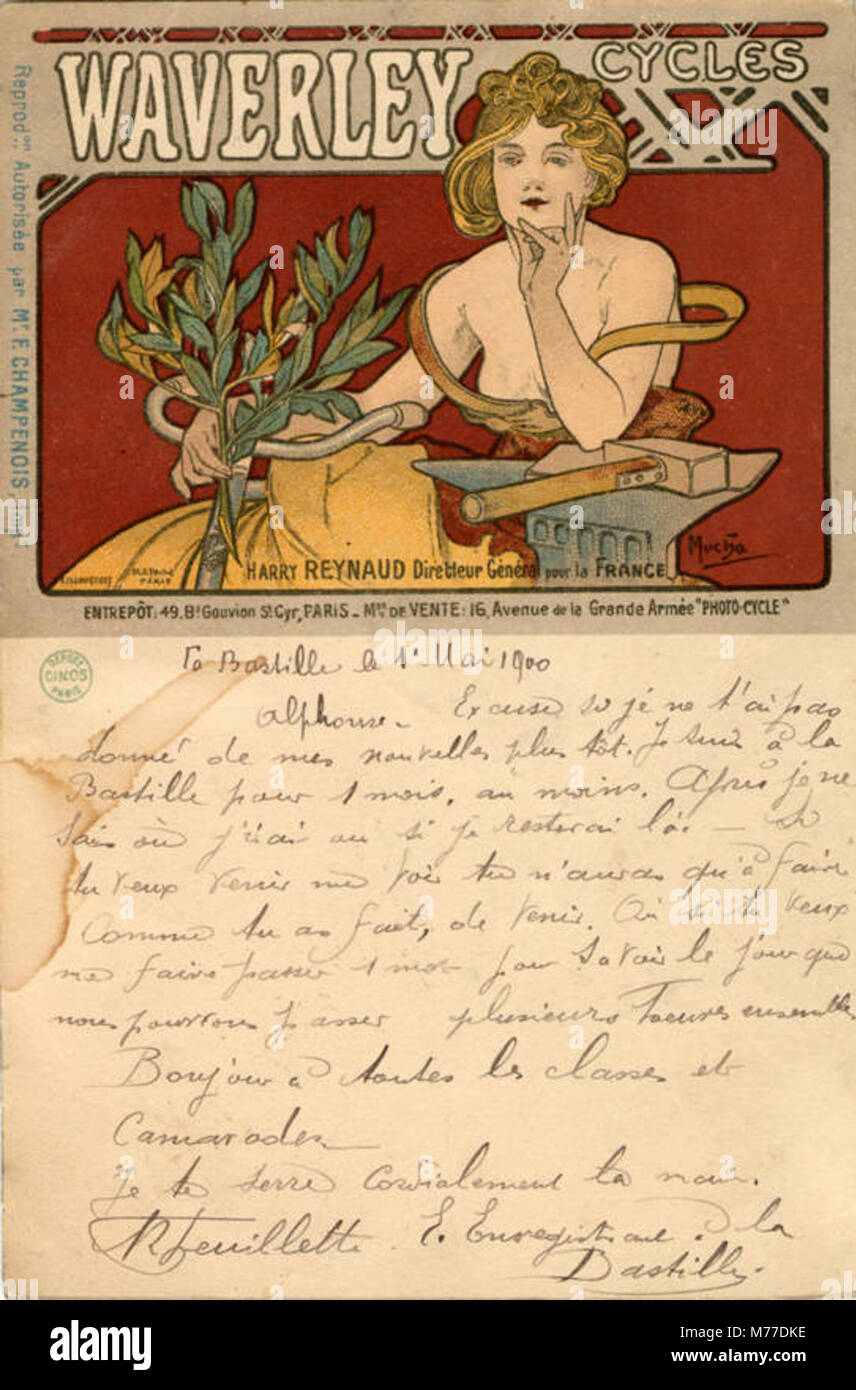 WAVERLEY
CYCLES
Reprodon. Autorisée par Mr. F. CHAMPENOIS Impr
F. CHAMPENOIS
PARIS
Mucha
HARRY REYNAUD Directeur Général pour la FRANCE
ENTREPÔT: 49.Bd Gouvion St Cyr, PARIS _ Mon DE VENTE: 16, Avenue de la Grande Armée "PHOTO-CYCLE"
DEPOSE
CINOS
PARIS
La Bastille le 1er Mai 1900
Alphonse - Excuse si je ne t'ai pas
donné de mes nouvelles plus tôt. Je suis à la
Bastille pour 1 mois, au moins. Après je ne
sais où j'irai ou si je resterai là. - Si
tu veux venir me voir tu n'auras qu'à faire
comme tu as fait, de venir. Ou si tu veux
me faire passer 1 mot pour savoir le jour que
nous pourrons passer plusieurs heures ensembles
Bonjour à toutes les classes et
Camarades
je te serre cordialement la main.
Feuillette E. Enregistrant à la
Bastille.
alamy
Image ID: M77DKE
www.alamy.com